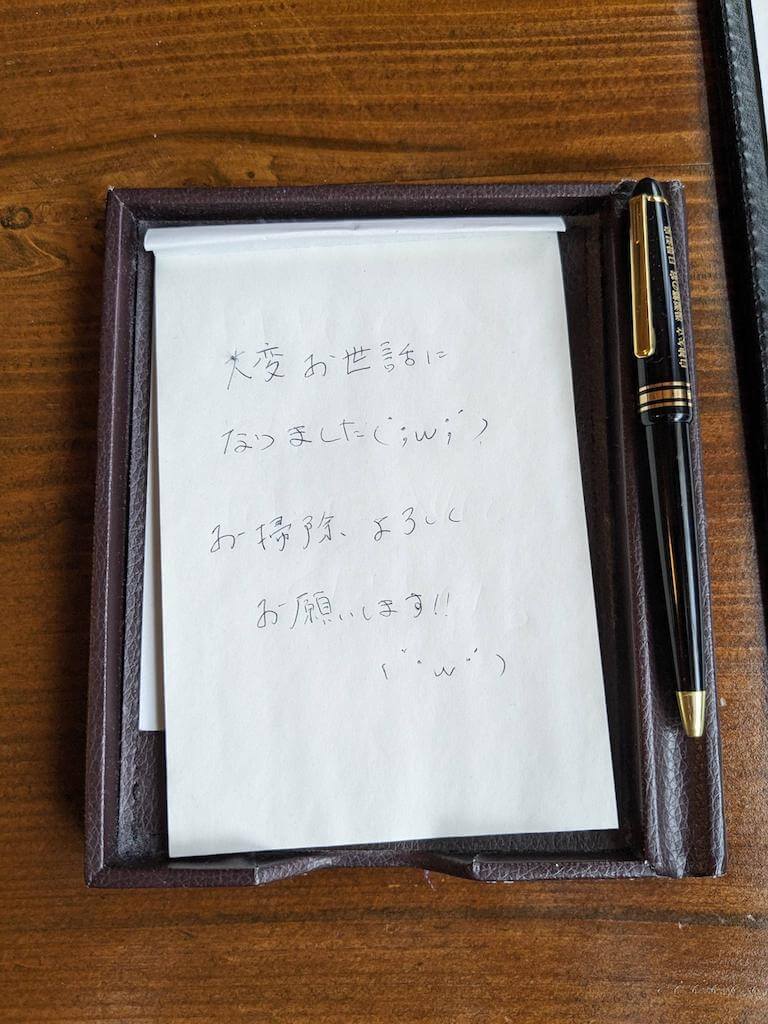 大変お世話に
なりました(´;ω;`)
お掃除、よろしく
お願いします!!
(´･ω･`)